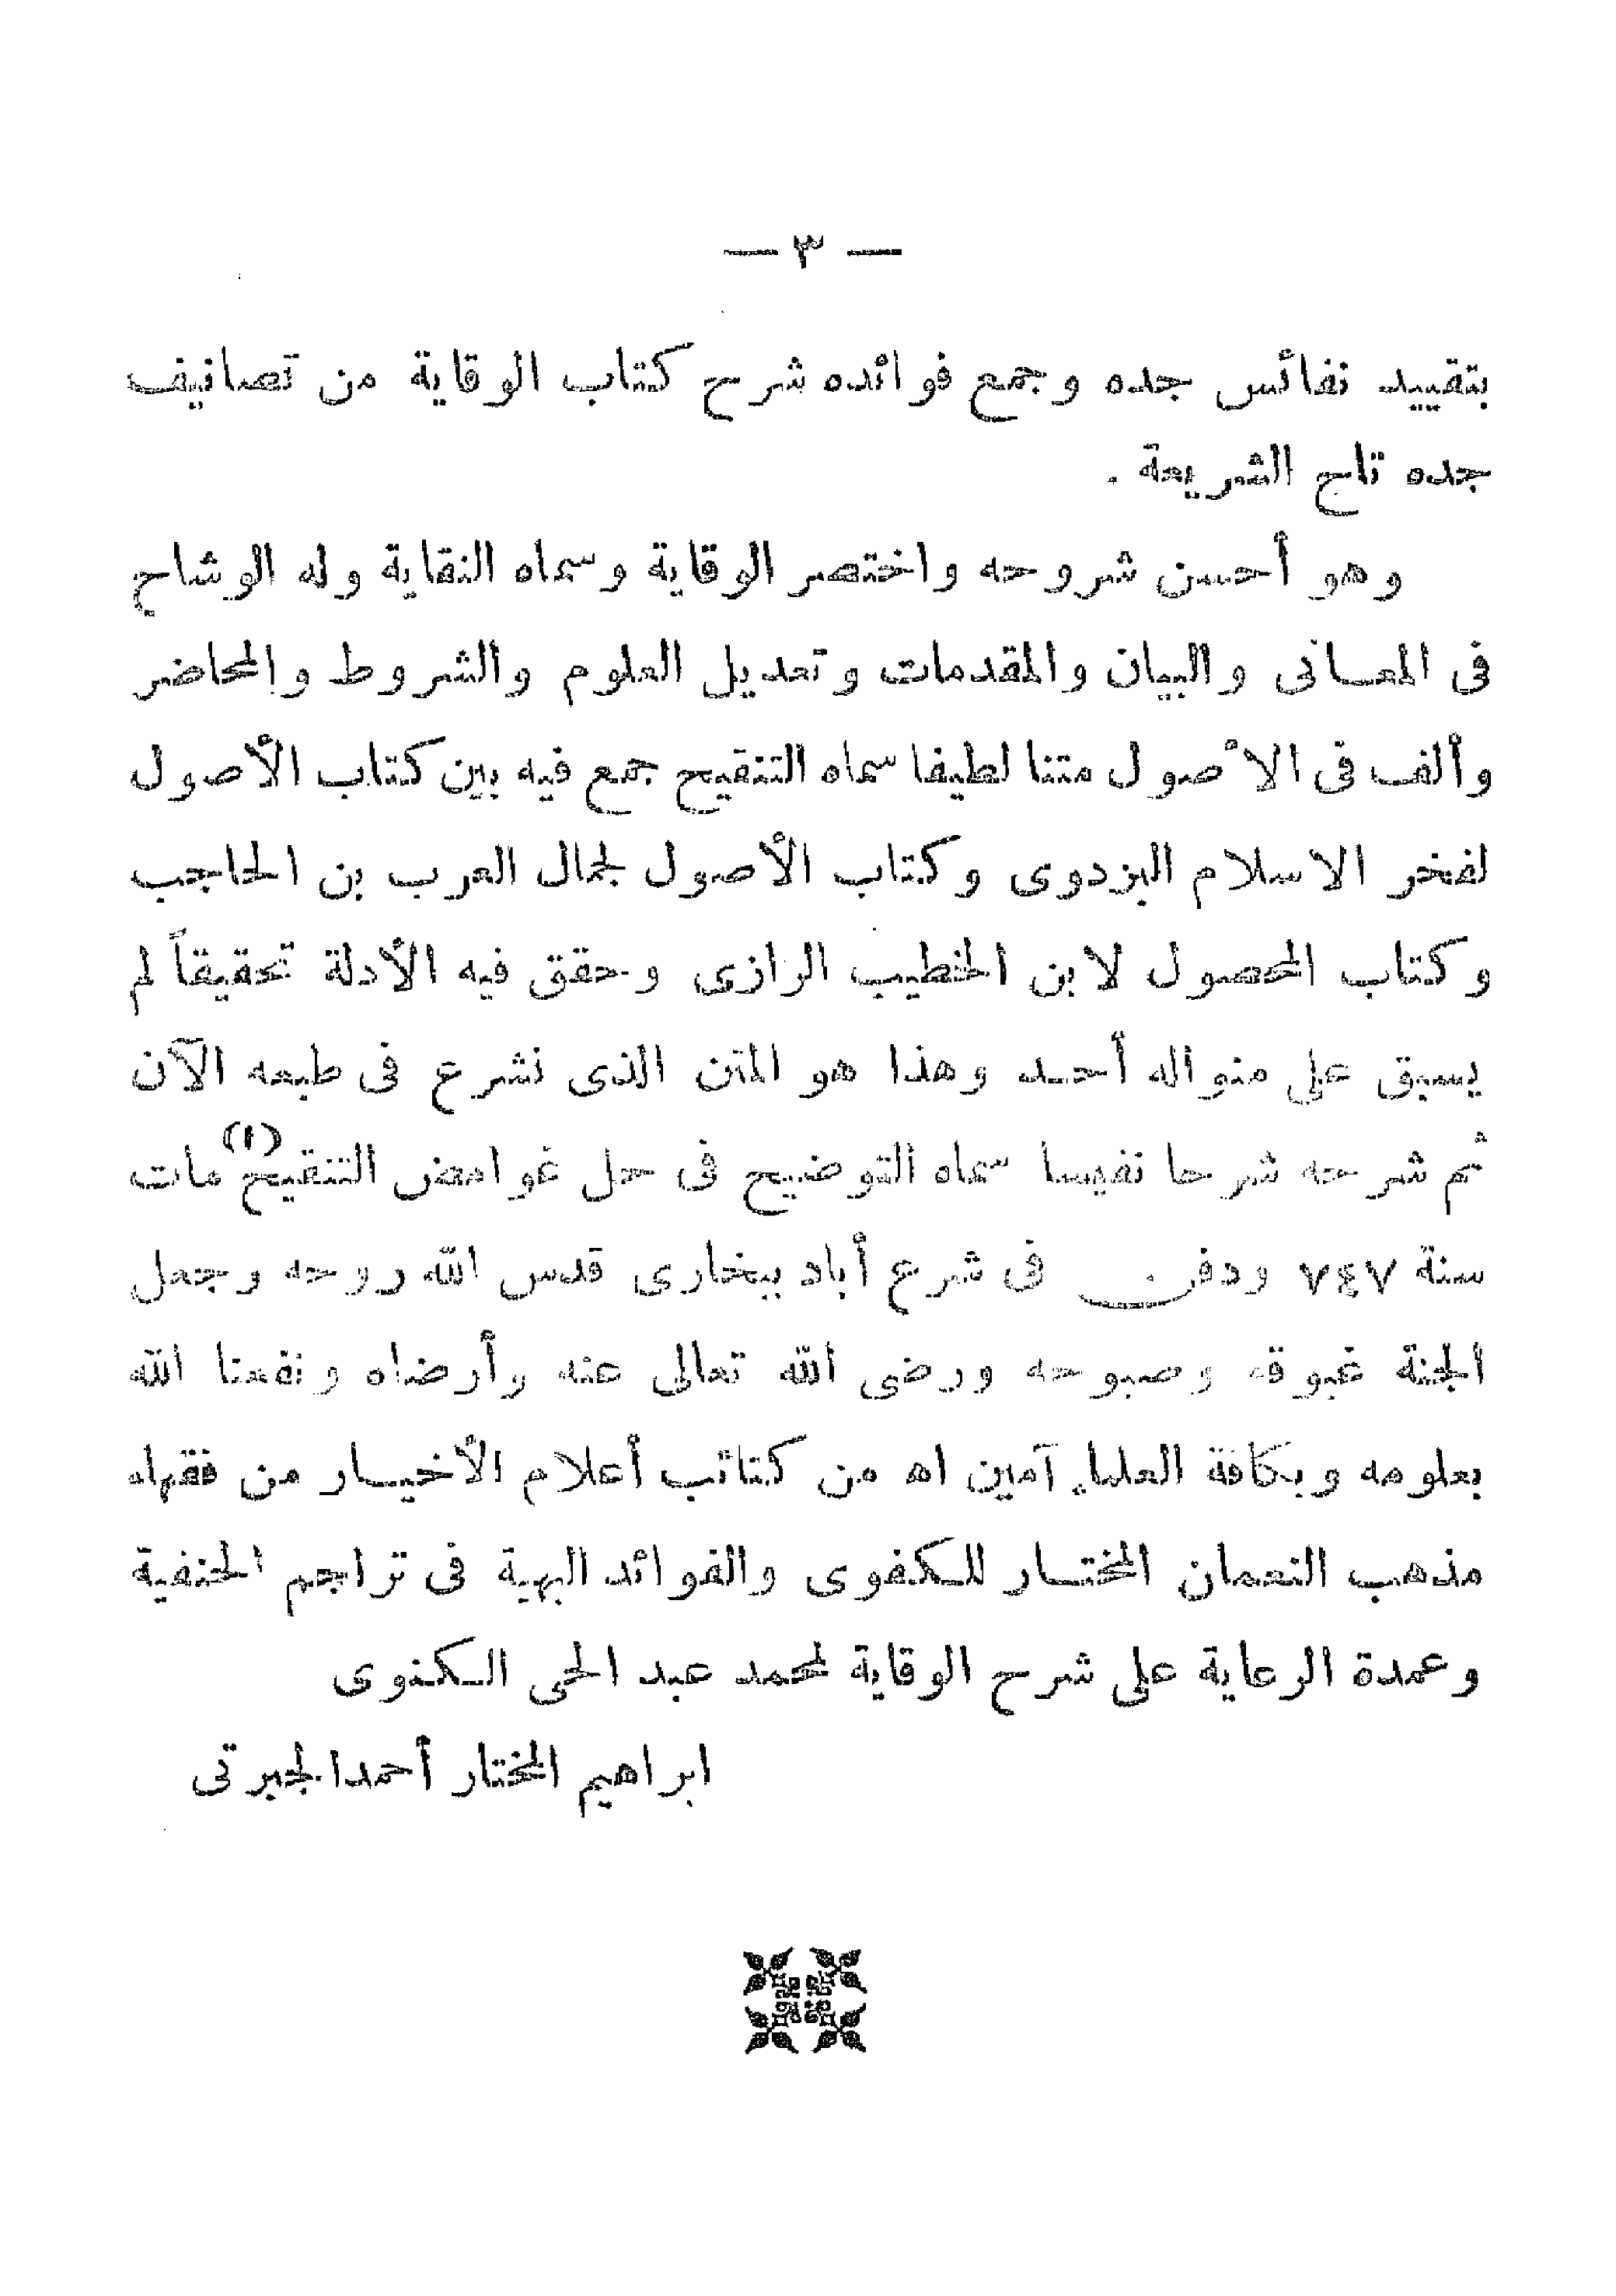 — ٣ —
بتقييد نفائس جده وجمع فوائده شرح كتاب الوقاية من تصانيف
جده تاج الشريعة .
وهو أحسن شروحه واختصر الوقاية وسماه النقاية وله الوشاح
فى المعـانى والبيان والمقدمات وتعديل العلوم والشروط والمحاضر
وألف فى الأصول متنا لطيفا سماه التنقيح جمع فيه بين كتاب الأصول
لفخر الاسلام البزدوى وكتاب الأصول لجمال العرب بن الحاجب
وكتاب المحصول لابن الخطيب الرازى وحقق فيه الأدلة تحقيقاً لم
يسبق على منواله أحـد وهذا هو المتن الذى نشرع فى طبعه الآن
ثم شرحه شرحا نفيسا سماه التوضيح فى حل غوامض التنقيح (١) مات
سنة ٧٤٧ ودفن فى شرع أباد ببخارى قدس الله روحه وجعل
الجنة غبوقه وصبوحه ورضى الله تعالى عنه وأرضاه ونفعنا الله
بعلومه وبكافة العلماء آمين اه من كتائب أعلام الأخيـار من فقهاء
مذهب النعمان المختـار للـكفوى والفوائد البهية فى تراجم الحنفية
وعمدة الرعاية على شرح الوقاية لمحمد عبد الحى الـكنوى
ابراهيم المختار أحمد الجبرتى